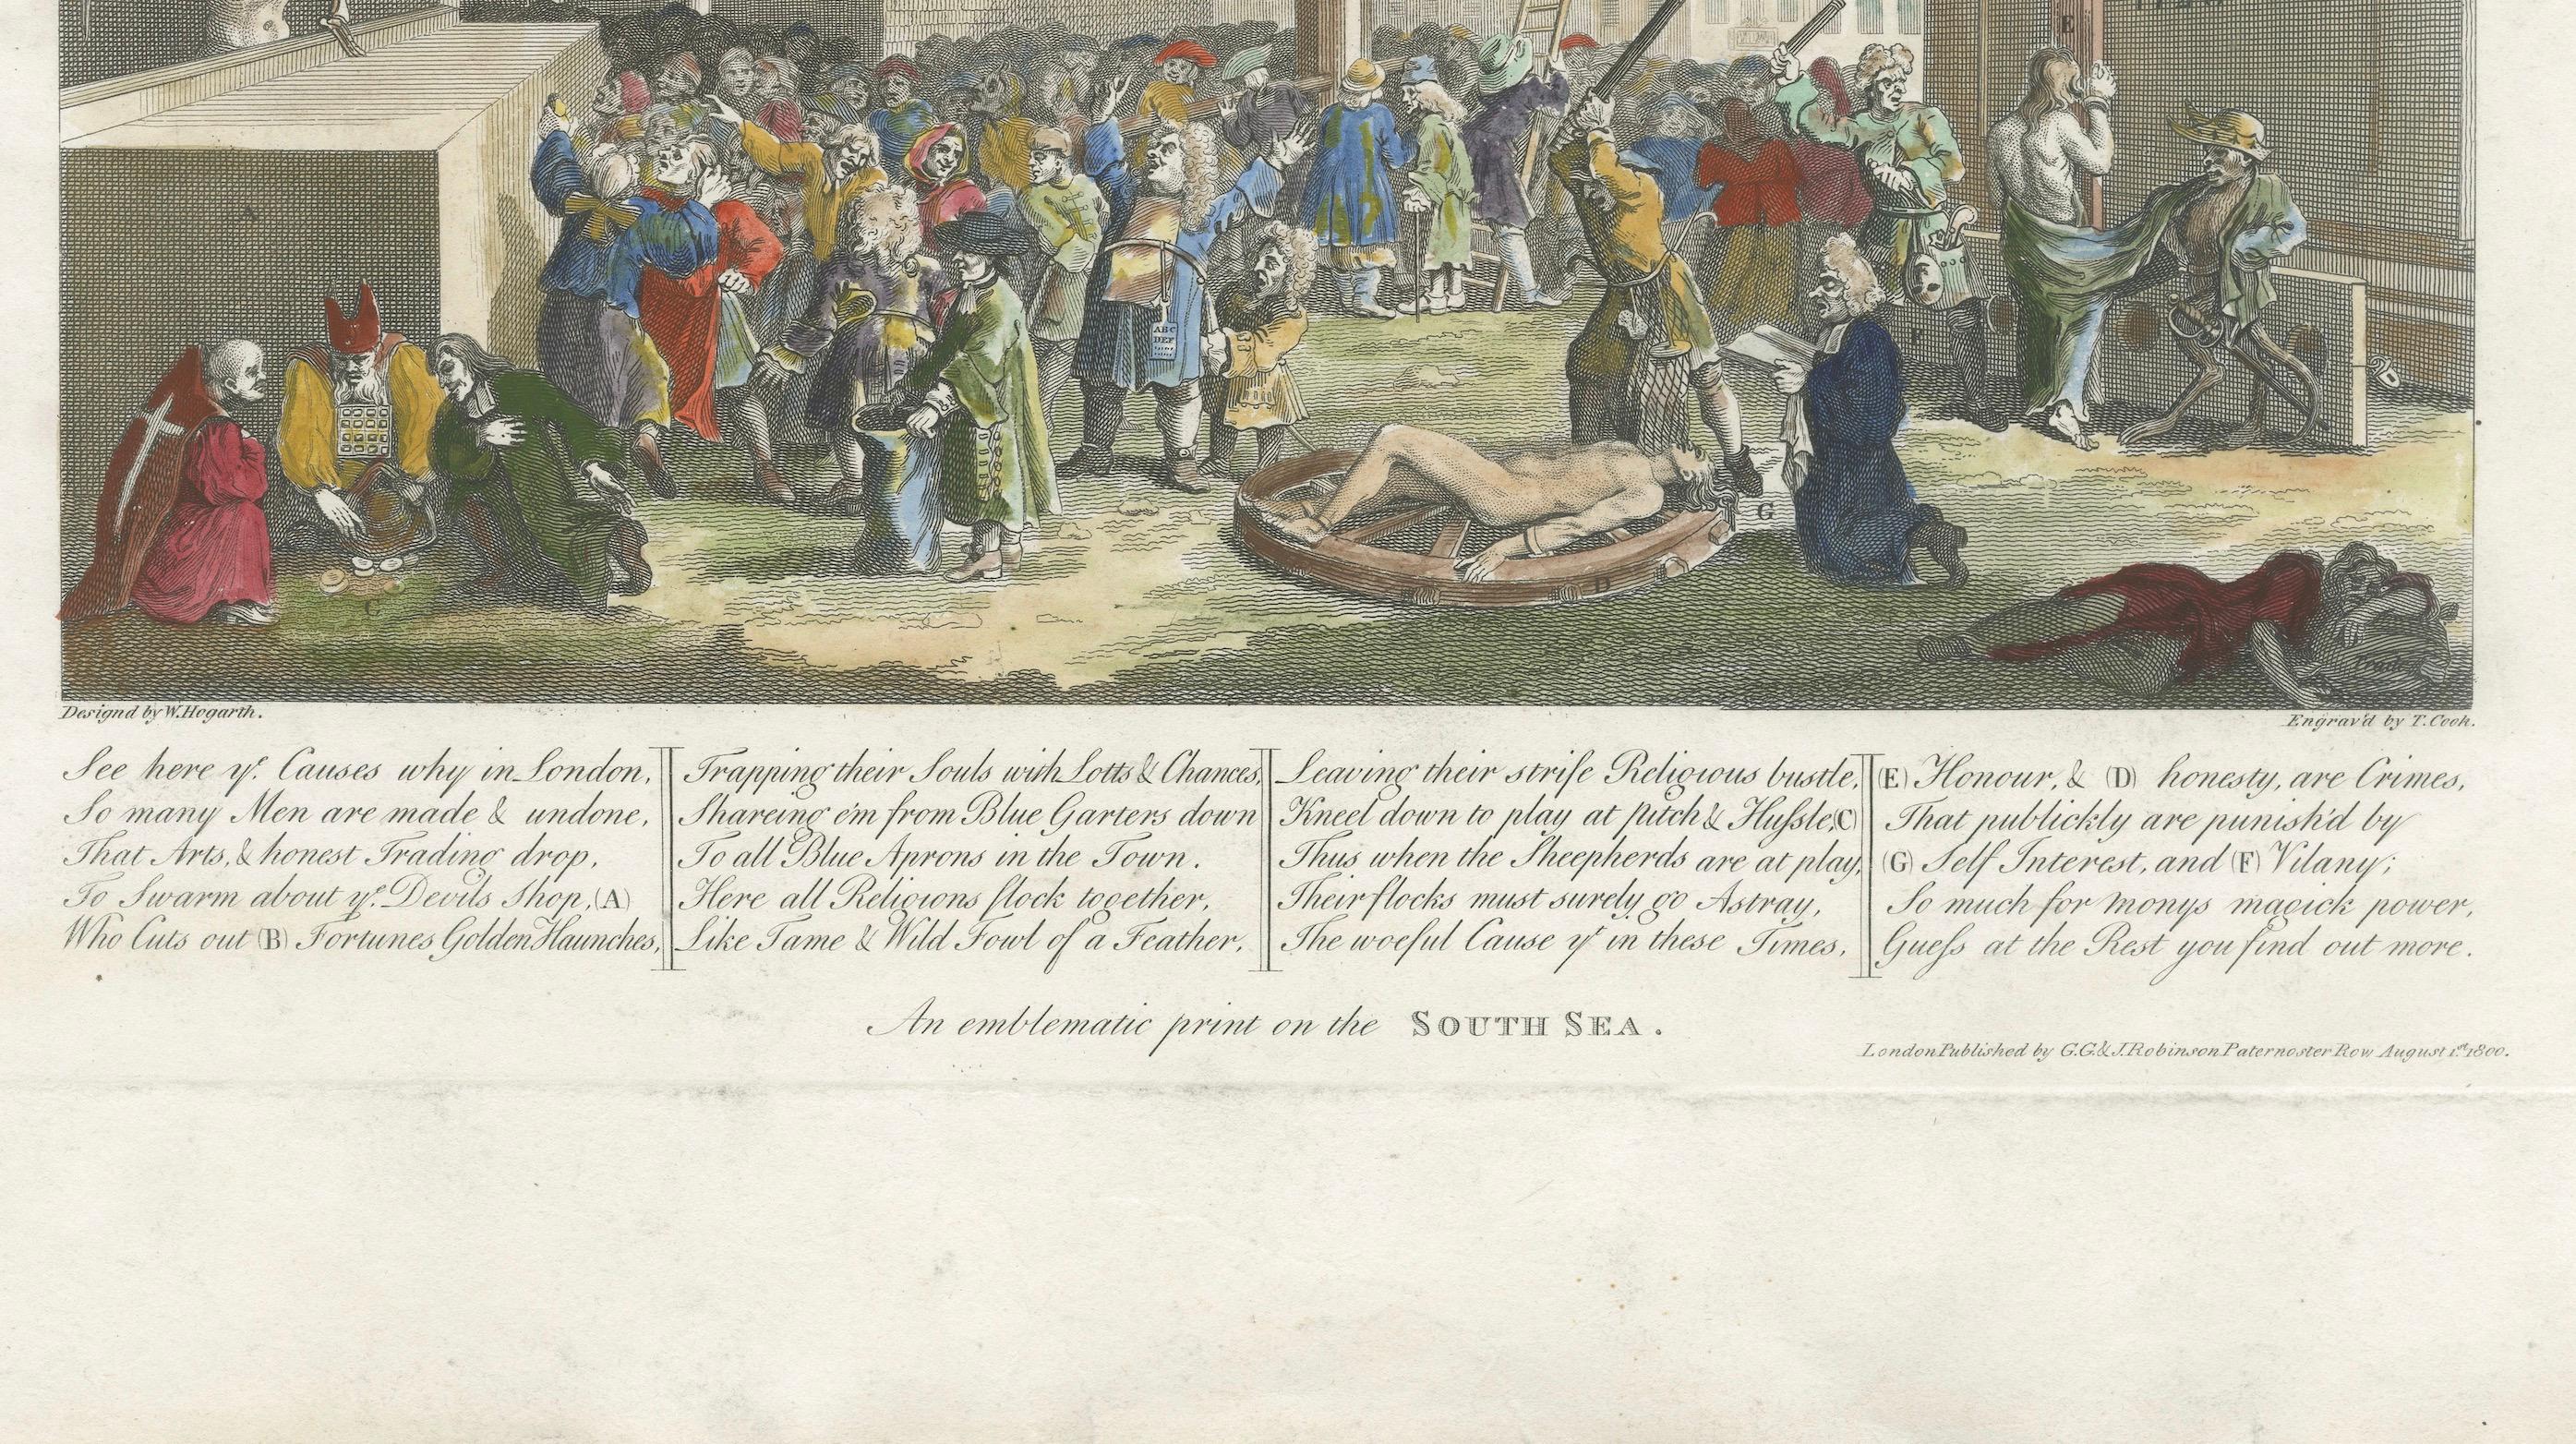 E
ABC
DEF
G
D
C
F
Designd by W. Hogarth.
Engrav'd by T. Cook.
See here yᵉ. Causes why in London,
So many Men are made & undone,
That Arts, & honest Trading drop,
To Swarm about yᵉ. Devils Shop, (A)
Who Cuts out (B) Fortunes Golden Haunches,
Trapping their Souls with Lotts & Chances,
Shareing em from Blue Garters down
To all Blue Aprons in the Town.
Here all Religions flock together,
Like Tame & Wild Fowl of a Feather,
Leaving their strife Religious bustle,
Kneel down to play at pitch & Hussle; (C)
Thus when the Sheepherds are at play,
Their flocks must surely go Astray,
The woeful Cause yᵗ in these Times,
(E) Honour, & (D) honesty, are Crimes,
That publickly are punish'd by
(G) Self Interest, and (F) Vilany;
So much for monys magick power,
Guess at the Rest you find out more.
An emblematic print on the SOUTH SEA.
London Published by G.G. & J. Robinson Paternoster Row August 1.st 1800.